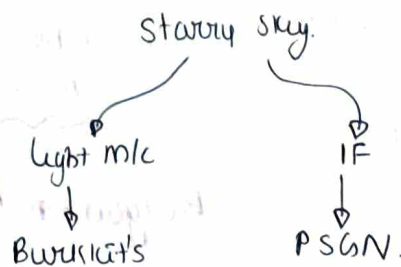 Starry sky.
light m/c
IF
Burkitt's
PSGN.